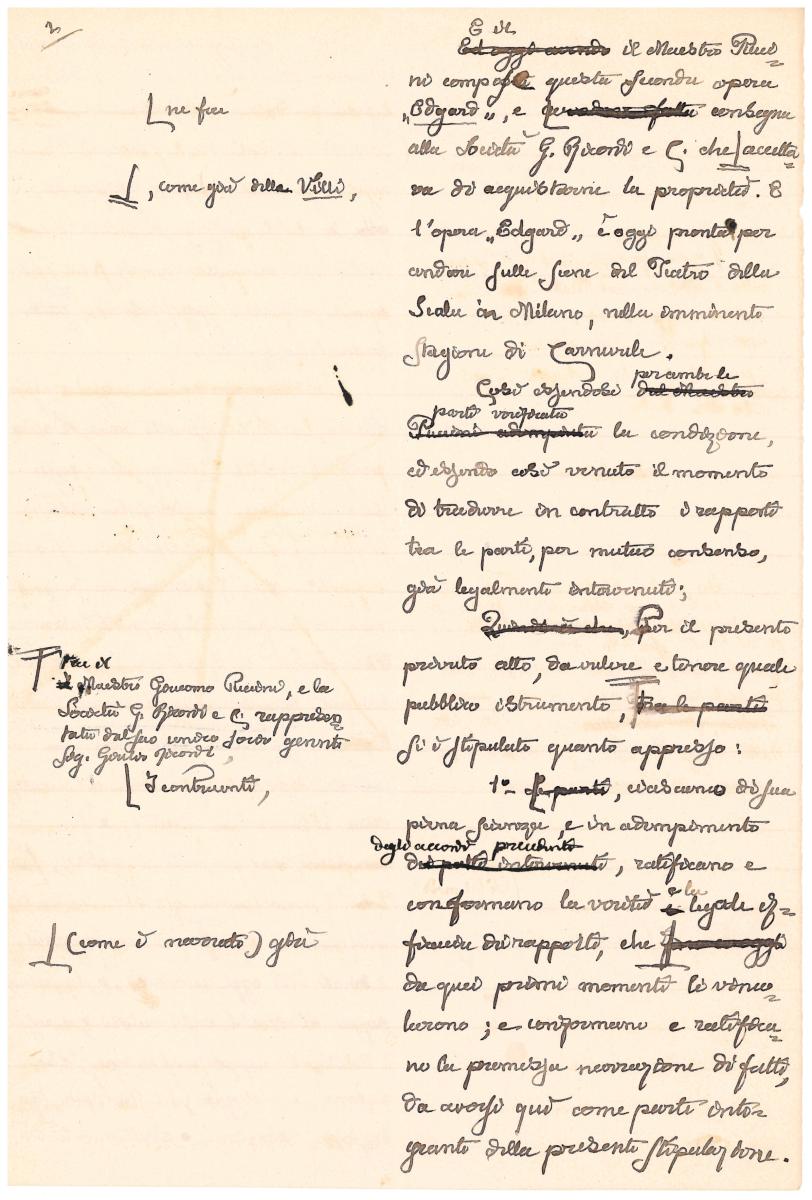 2
E il
Ed oggi avendo il Maestro Pucci=
ni composta questa seconda opera
„Edgard„, e consegna
alla Società G. Ricordi e C. che accetta=
va di acquistarne la proprietà. E
l'opera „Edgard„ è oggi pronta per
andare sulle scene del Teatro della
Scala in Milano, nella imminente
stagione di Carnevale.
ne fa
, come già della Villi,
Così essendosi per ambe le
dal Maestro
parti verificata
Puccini adempiuta la condizione,
ed essendo così venuto il momento
di tradurre in contratto i rapporti
tra le parti, per mutuo consenso,
già legalmente intervenuti;
Quindi è che, Per il presente
privato atto, da valere e tenere quale
pubblico istrumento, tra le parti
si è stipulato quanto appresso:
tra il
il Maestro Giacomo Puccini, e la
Società G. Ricordi e C. rappresen
tata dal suo unico socio gerente
Sig. Giulio Ricordi,
I contraenti,
1º- Le parti, ciascuno di sua
piena scienza, e in adempimento
degli accordi precedenti
dei patti intervenuti, ratificano e
confermano la verità e la legale ef=
ficacia di rapporti, che fino a oggi
da quei primi momenti li vinco=
larono; e confermano e ratifica=
no la premessa narrazione di fatti,
da aversi qui come parte inte=
grante della presente stipulazione.
(come è narrato) già